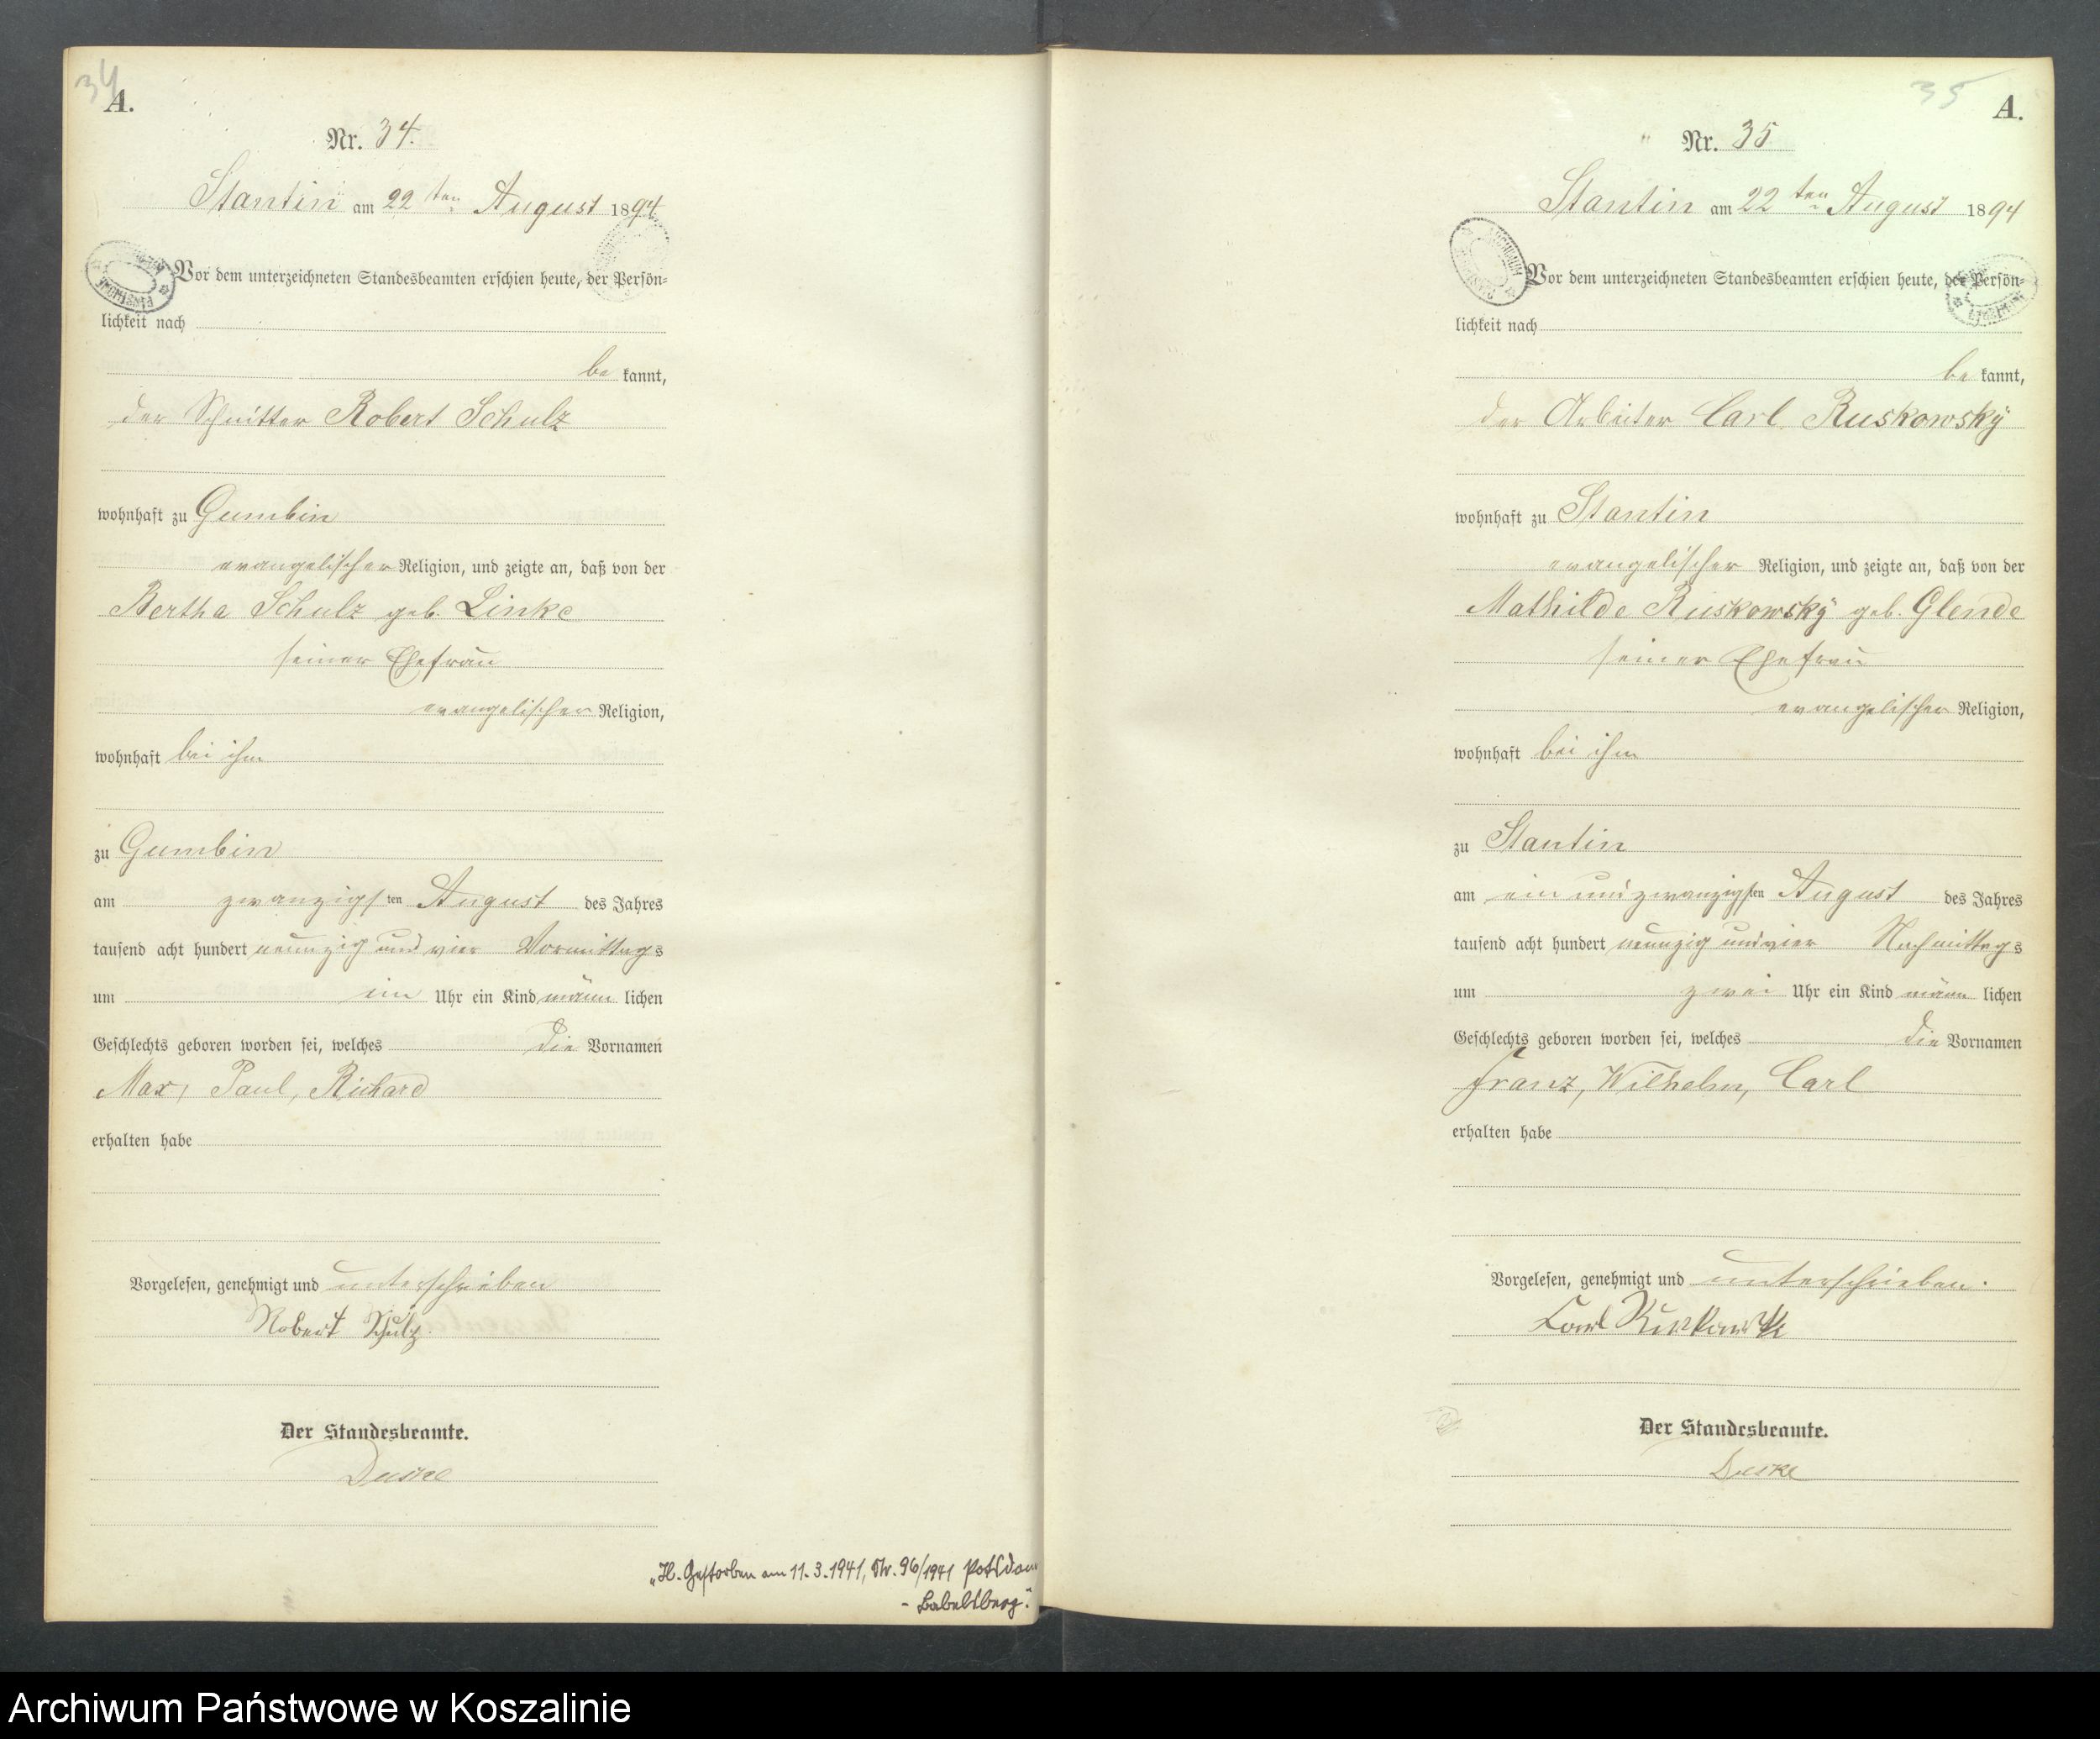 34
A.
Nr. 34.
Stantin am 22ten August 1894
Vor dem unterzeichneten Standesbeamten erschien heute, der Persön=
lichkeit nach
be kannt,
der Schnitter Robert Schulz
wohnhaft zu Gumbin
evangelischer Religion, und zeigte an, daß von der
Bertha Schulz geb. Linke
seiner Ehefrau
evangelischer Religion,
wohnhaft bei ihm
zu Gumbin
am zwanzigsten August des Jahres
tausend acht hundert neunzig und vier Vormittags
um ein Uhr ein Kind männ lichen
Geschlechts geboren worden sei, welches die Vornamen
Max, Paul, Richard
erhalten habe
Vorgelesen, genehmigt und unterschrieben
Robert Schulz.
Der Standesbeamte.
Deske
„H. Gestorben am 11.3.1941, Nr. 96/1941 Potsdam
- Babelsberg."
35
A.
Nr. 35
Stantin am 22ten August 1894
Vor dem unterzeichneten Standesbeamten erschien heute, der Persön=
lichkeit nach
be kannt,
der Arbeiter Carl Ruskowsky
wohnhaft zu Stantin
evangelischer Religion, und zeigte an, daß von der
Mathilde Ruskowsky geb. Glende
seiner Ehefrau
evangelischer Religion,
wohnhaft bei ihm
zu Stantin
am ein und zwanzigsten August des Jahres
tausend acht hundert neunzig und vier Nachmittags
um zwei Uhr ein Kind männ lichen
Geschlechts geboren worden sei, welches die Vornamen
Franz, Wilhelm, Carl
erhalten habe
Vorgelesen, genehmigt und unterschrieben.
Carl
Der Standesbeamte.
Deske
Archiwum Państwowe w Koszalinie